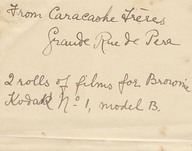 From Caracache Frères
Grande Rue de Pera
2 rolls of films for Brownie
Kodak No 1, model B.